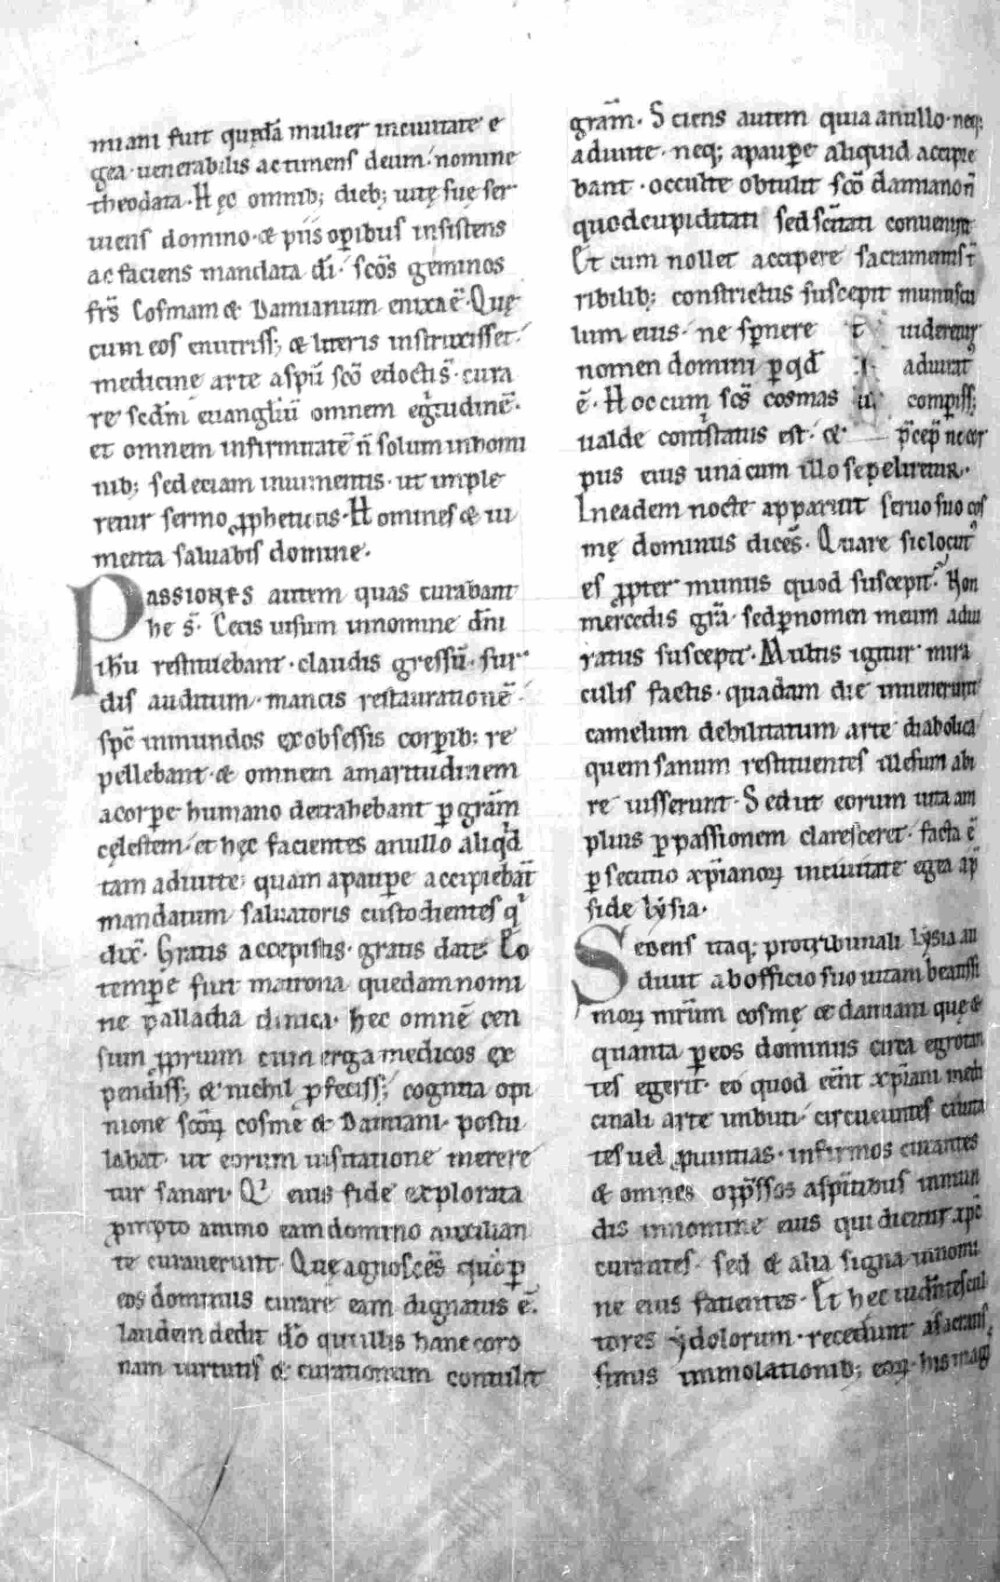 miani fuit quędā mulier inciuitate e
gea uenerabilis actimens deum nomine
theodata. Hęc omnib; dieb; uitę suę ser
uiens domino. & piis oṗibus insistens
ac faciens mandata dī. scōs geminos
frs̄ Cosmam & Damianum enixa ē. Quę
cum eos enutriss; & literis instruxisset.
medicine arte a spū scō edoctis. cura
re scdm̄ euangliū omnem egritudinē.
et omnem infirmitatē n̄ solum inhomi
nib; sed eciam iniumentis. ut imple
retur sermo ꝓpheticus. Homines & iu
menta saluabis domine.
PASSIONES autem quas curabant
he s̄. Cecis uisum innomine dn̄i
ihū restituebant. claudis gressū. sur
dis auditum. mancis restaurationē.
spc̄ inmundos exobsessis corꝑib; re
pellebant. & omnem amaritudinem
acorꝑe humano detrahebant ꝑ grām
cęlestem. et hęc facientes anullo aliqd
tam adiuite. quam apauꝑe accipiebāt
mandatum saluatoris custodientes q'
dix̄. Gratis accepistis. gratis date. Eo
temꝑe fuit matrona quedam nomi
ne palladia clinica. hec omnē cen
sum ꝓprium cum erga medicos ex
pendiss; & nichil ꝓfeciss; cognita opi
nione scōꝝ cosme & Damiani. postu
labat. ut eorum uisitatione merere
tur sanari. Q' eius fide explorata
ꝓmpto animo eam domino auxilian
te curauerunt. Quę agnoscēs quō ꝑ
eos dominus curare eam dignatus ē.
laudem dedit dō qui illis hanc coro
nam uirtutis & curationum contulit
grām. Sciens autem quia anullo. neq;
adiuite. neq; apauꝑe aliquid accipie
bant. occulte obtulit scō damiano n̄
quod cupiditati sed scītati conueniret
Et cum nollet accipere sacramentis t̄
ribilib; constrictus suscepit munuscu
lum eius. ne sꝑnere t uideretur
nomen domini ꝑ qd̄ . adiurat'
ē. Hoc cum scs̄ cosmas comꝑiss;
ualde contristatus est. & p̄cep̄ ne cor
pus eius unacum illo sepeliretur.
In eadem nocte apparuit seruo suo cos
mę dominus dicēs. Quare sic locut'
es ꝓpter munus quod suscepit. Non
mercedis grā. sed ꝑ nomen meum adiu
ratus suscepit. Multis igitur mira
culis factis. quadam die inuenerunt
camelum debilitatum arte diabolica
quem sanum restituentes illesum abi
re iusserunt. Sed ut eorum uita am
plius ꝑ passionem claresceret. facta ē
ꝑsecutio xp̄ianoꝝ inciuitate egea ap̄
side lysia.
Sedens itaq; protribunali lysia au
diuit ab officio suo uitam beatissi
moꝝ mr̄um cosmę & damiani quę &
quanta ꝑ eos dominus circa egrotan
tes egerit. eo quod eēnt xp̄iani medi
cinali arte inbuti. circueuntes ciuita
tes uel ꝓuintias. infirmos curantes
& omnes opp̄ssos aspīritibus inmun
dis innomine eius qui dicitur xpc̄
curantes. sed & alia signa innomi
ne eius facientes. Et hec uidentes cul
tores ydolorum. recedunt a sacratis
simis immolationib; eoꝝ. his magi